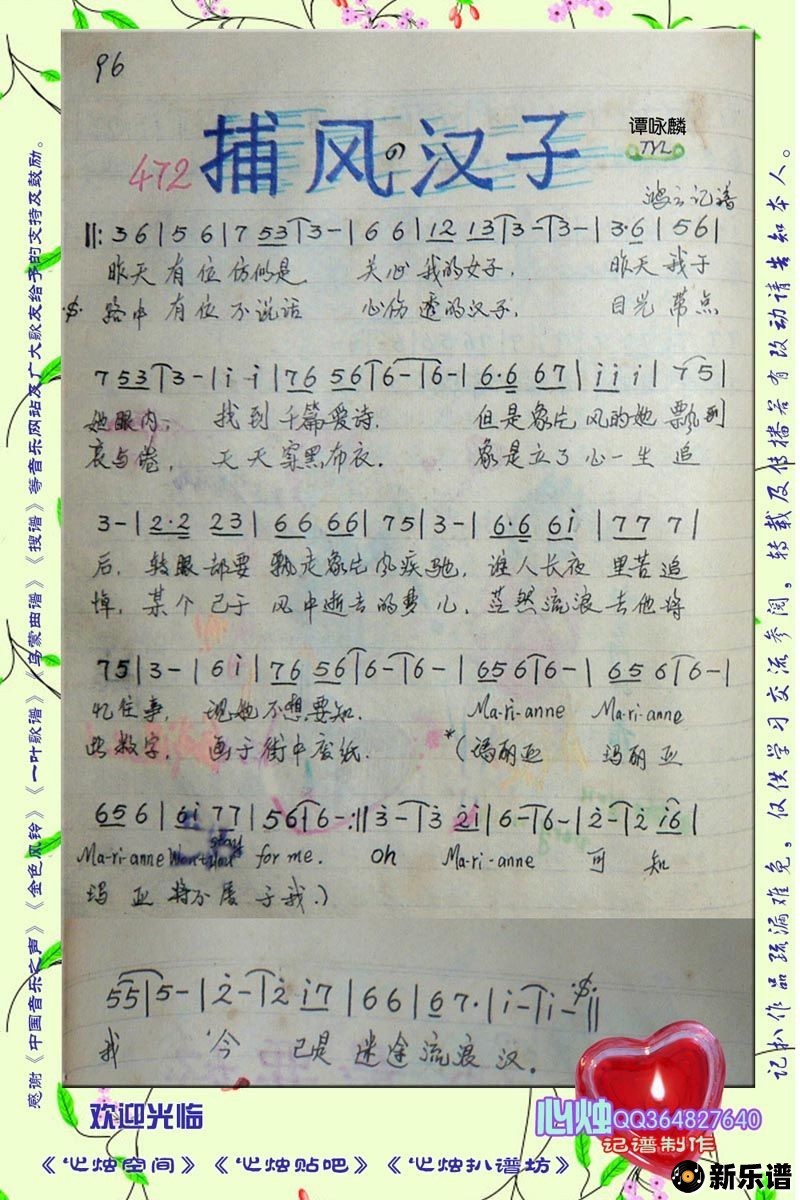 96
472 捕风の汉子
谭咏麟
TYL
鸿云记谱
‖: 3 6 | 5 6 | 7 53 | 3 – | 6 6 | 12 13 | 3 – | 3 – | 3·6 | 5 6 |
昨天 有位 仿似是 关心 我的女子. 昨天 我于
路中 有位 不说话 心伤 透的汉子. 目光 带点
7 53 | 3 – | i i | 76 56 | 6 – | 6 – | 6·6 67 | i i i | 7 5 |
她眼内, 找到 千篇爱诗. 但是象片 风的她 飘到
哀与倦, 天天 穿黑布衣. 象是立了 心一生 追
3 – | 2·2 23 | 6 6 66 | 7 5 | 3 – | 6·6 6i | 7 7 7 |
后, 转眼都要 飘走象片 风疾驰, 谁人长夜 里苦追
悼, 某个已于 风中逝去的梦儿, 茫然流浪 去他将
7 5 | 3 – | 6 i | 76 56 | 6 – | 6 – | 65 6 | 6 – | 65 6 | 6 – |
忆往事, 现她 不想要知. Ma-ri-anne Ma-ri-anne
此数字, 画于 街中废纸. *(玛丽亚 玛丽亚
65 6 | 6i 77 | 5 6 | 6 – :‖ 3 – | 3 2i | 6 – | 6 – | 2 – | 2 i6 |
Ma-ri-anne Won't you stay for me. Oh Ma-ri-anne 可 知
玛 亚 将不 属 于我.)
55 | 5 – | 2 – | 2 i7 | 6 6 | 6 7· | i – | i – ‖
我 今 已是 迷途 流浪 汉.
感谢《中国音乐之声》《金色风铃》《一叶歌谱》《乌蒙曲谱》《搜谱》等音乐网站及广大歌友给予的支持及鼓励。
记扒作品疏漏难免,仅供学习交流参阅,转载及传播若有改动请告知本人。
欢迎光临
心烛QQ364827640
记谱制作
《心烛空间》《心烛贴吧》《心烛扒谱坊》
新乐谱